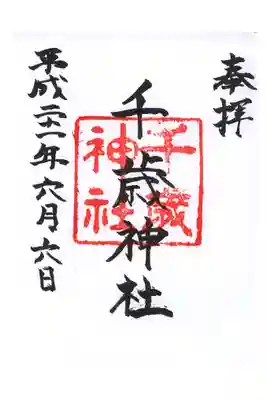 奉拝
千歳神社
千歳
神社
平成二十一年六月六日